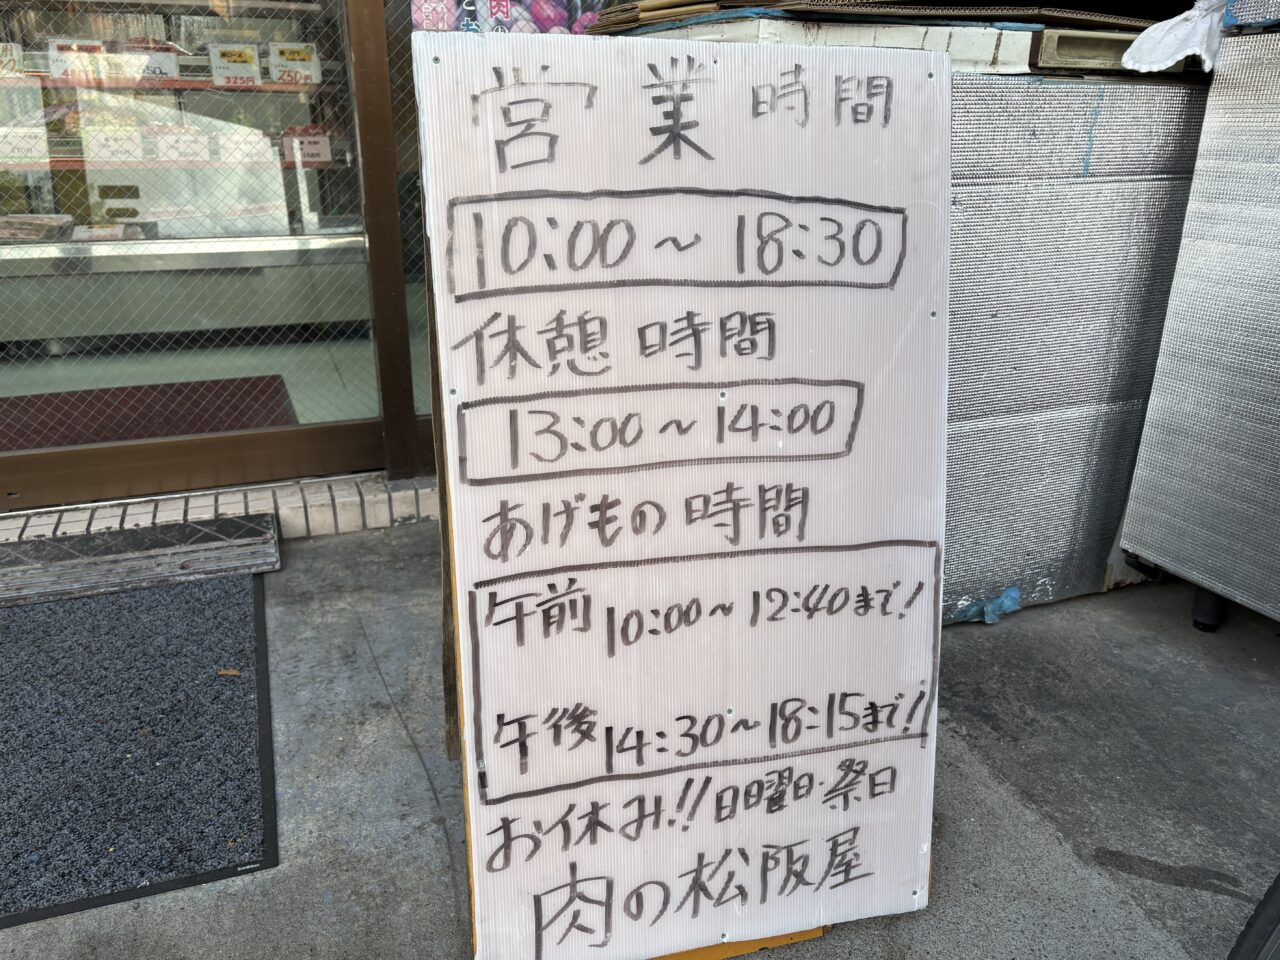 肉の
325円
250円
営業時間
10:00～18:30
休憩時間
13:00～14:00
あげもの時間
午前 10:00～12:40まで!
午後 14:30～18:15まで!
お休み!!日曜日・祭日
肉の松阪屋